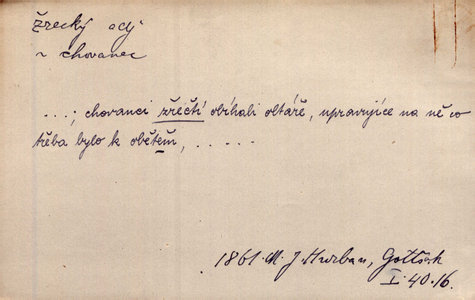 žrecký adj
~ chovanec
...; chovanci žrečtí obíhali oltáře, upravujíce na ně co
třeba bylo k obětem, .....
1861. M. J. Hurban, Gottšalk
I. 40. 16.